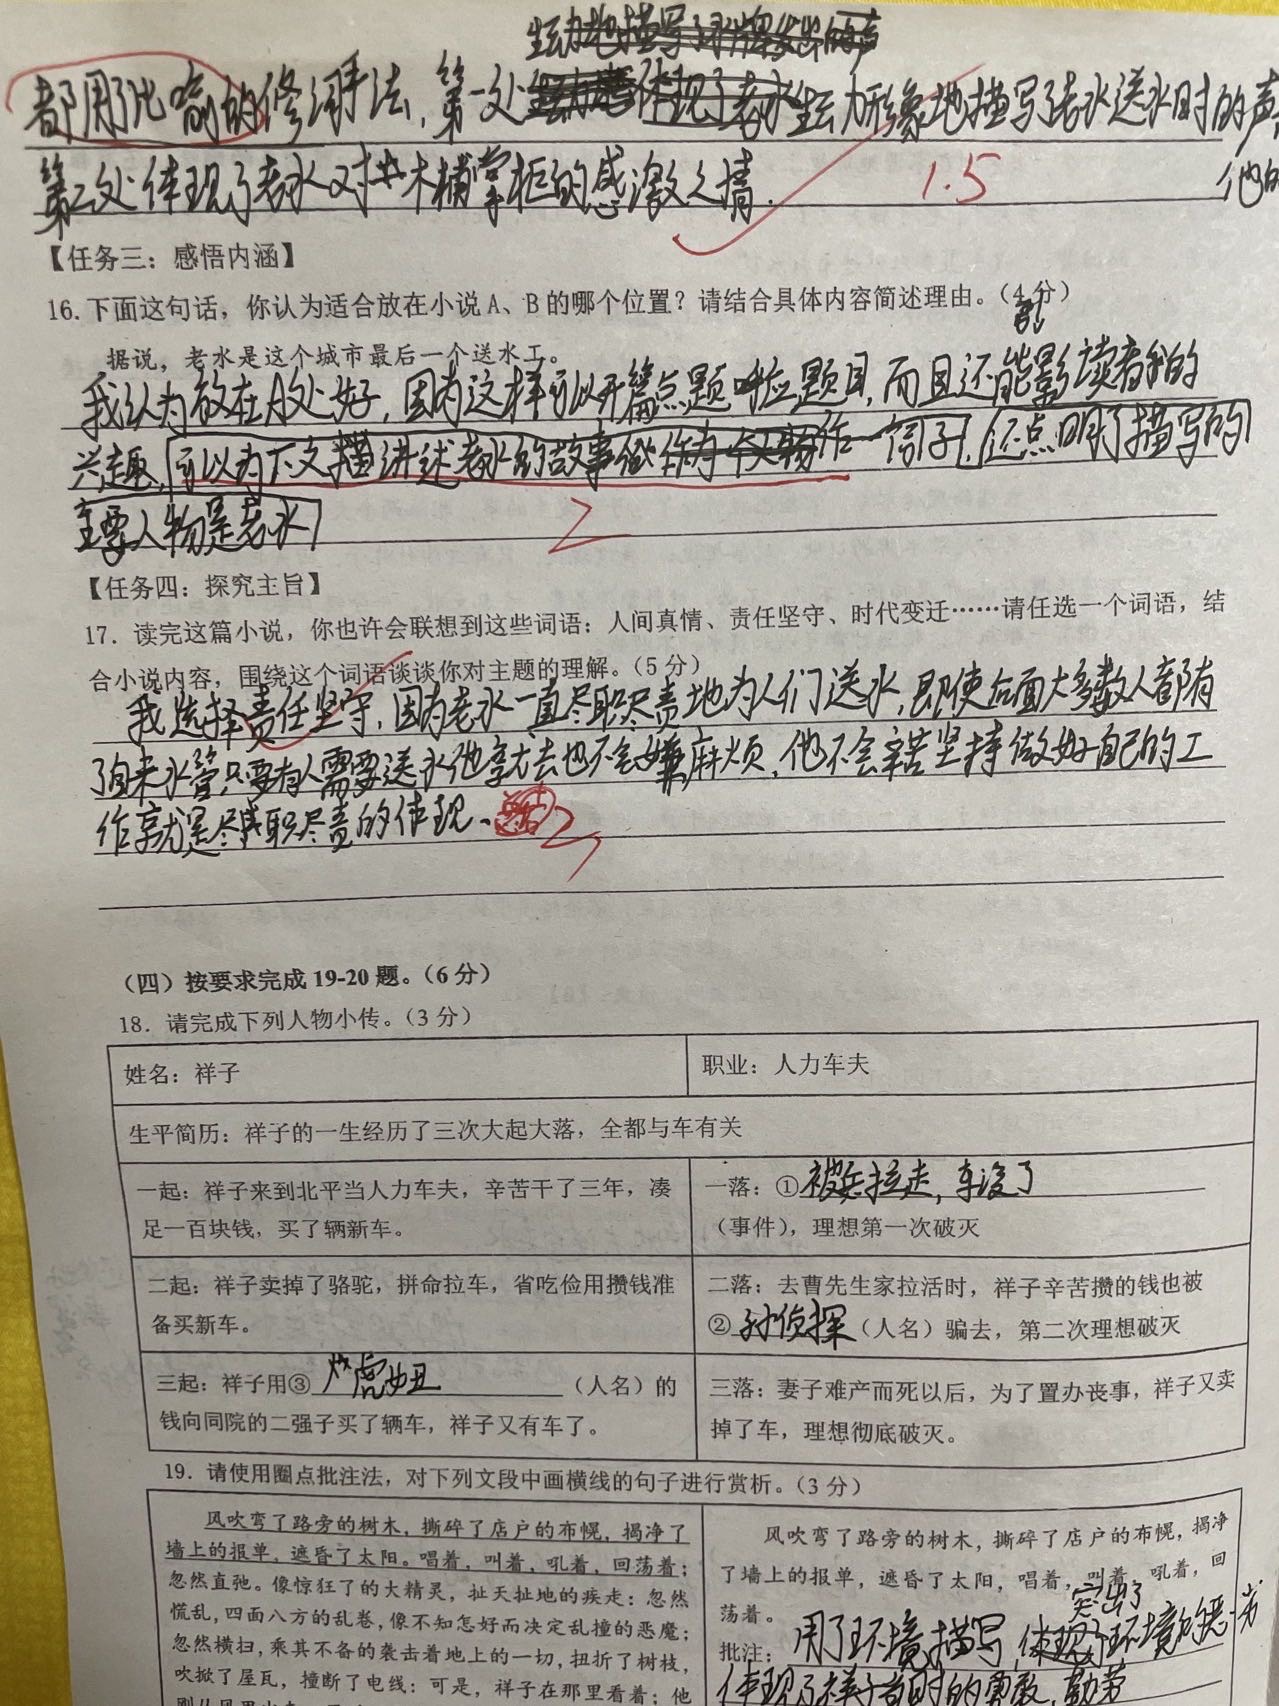 生动地描写了水牌发出的声
都用了比喻的修词手法,第一处生动形象地描写了老水送水时的声
第二处体现了老水对林木铺掌柜的感激之情. 1.5 他的
【任务三：感悟内涵】
16. 下面这句话，你认为适合放在小说 A、B 的哪个位置？请结合具体内容简述理由。（4 分）
据说，老水是这个城市最后一个送水工。
我认为放在A处好,因为这样可以开篇点题呼应题目,而且还能影读者我的
兴趣,可以为下文讲述老水的故事做作一个引子.还点明了描写的
主要人物是老水 2
【任务四：探究主旨】
17. 读完这篇小说，你也许会联想到这些词语：人间真情、责任坚守、时代变迁……请任选一个词语，结
合小说内容，围绕这个词语谈谈你对主题的理解。（5 分）
我选择责任坚守,因为老水一直尽职尽责地为人们送水,即使后面大多数人都有
了自来水管只要有人需要送水他就去也不会嫌麻烦,他不会辛苦坚持做好自己的工
作就是尽职尽责的体现、 2
（四）按要求完成 19-20 题。（6 分）
18. 请完成下列人物小传。（3 分）
姓名：祥子 职业：人力车夫
生平简历：祥子的一生经历了三次大起大落，全都与车有关
一起：祥子来到北平当人力车夫，辛苦干了三年，凑 一落：①被兵拉走,车没了
足一百块钱，买了辆新车。 （事件），理想第一次破灭
二起：祥子卖掉了骆驼，拼命拉车，省吃俭用攒钱准 二落：去曹先生家拉活时，祥子辛苦攒的钱也被
备买新车。 ②孙侦探（人名）骗去，第二次理想破灭
三起：祥子用③虎妞（人名）的 三落：妻子难产而死以后，为了置办丧事，祥子又卖
钱向同院的二强子买了辆车，祥子又有车了。 掉了车，理想彻底破灭。
19. 请使用圈点批注法，对下列文段中画横线的句子进行赏析。（3 分）
风吹弯了路旁的树木，撕碎了店户的布幌，揭净了
墙上的报单，遮昏了太阳。唱着，叫着，吼着，回荡着；
忽然直弛。像惊狂了的大精灵，扯天扯地的疾走；忽然
慌乱，四面八方的乱卷，像不知怎好而决定乱撞的恶魔；
忽然横扫，乘其不备的袭击着地上的一切，扭折了树枝，
吹掀了屋瓦，撞断了电线：可是，祥子在那里看着；他
风吹弯了路旁的树木，撕碎了店户的布幌，揭净
了墙上的报单，遮昏了太阳，唱着，叫着，吼着，回
荡着。 突出了
批注：用了环境描写,体现了环境的恶劣
体现了祥子当时的勇敢,勤劳